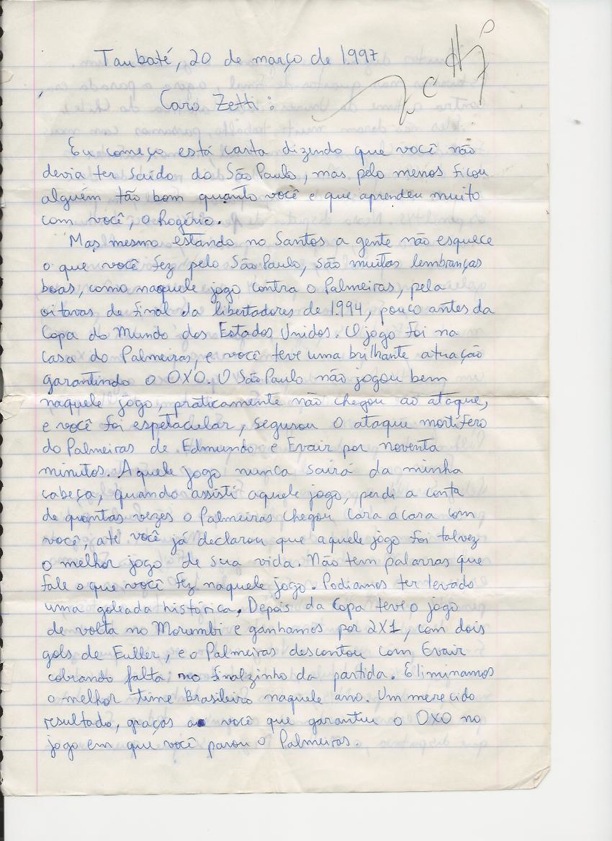 Taubaté, 20 de março de 1997
Zetti
Caro Zetti:
Eu começo está carta dizendo que você não
devia ter saído do São Paulo, mas pelo menos ficou
alguém tão bom quanto você e que aprendeu muito
com você, o Rogério.
Mas mesmo estando no Santos a gente não esquece
o que você fez pelo São Paulo, são muitas lembranças
boas, como naquele jogo contra o Palmeiras, pela
oitavas de final da libertadores de 1994, pouco antes da
Copa do Mundo dos Estados Unidos. O jogo foi na
casa do Palmeiras, e você teve uma brilhante atuação
garantindo o 0X0. O São Paulo não jogou bem
naquele jogo, práticamente não chegou ao ataque,
e você foi espetacular, segurou o ataque mortífero
do Palmeiras de Edmundo e Evair por noventa
minutos. Aquele jogo nunca sairá da minha
cabeça, quando assisti aquele jogo, perdi a conta
de quantas vezes o Palmeiras chegou cara a cara com
você, até você já declarou que aquele jogo foi talvez
o melhor jogo de sua vida. Não tem palavras que
fale o que você fez naquele jogo. Podiamos ter levado
uma goleada histórica. Depois da Copa teve o jogo
de volta no Morumbi e ganhamos por 2X1, com dois
gols de Euller, e o Palmeiras descontou com Evair
cobrando falta no finalzinho da partida. Eliminamos
o melhor time Brasileiro naquele ano. Um merecido
resultado, graças a você que garantiu o 0X0 no
jogo em que você parou o Palmeiras.